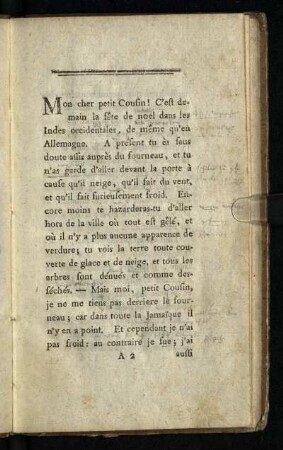 Mon cher petit Cousin! C'est de-
main la fête de noël dans les
Indes occidentales, de même qu'en
Allemagne. A présent tu ès sans
doute assis auprès du fourneau, et tu
n'as garde d'aller devant la porte à
cause qu'il neige, qu'il fait du vent,
et qu'il fait furieusement froid. En-
core moins te hazarderas-tu d'aller
hors de la ville où tout est gêlé, et
où il n'y a plus aucune apparence de
verdure; tu vois la terre toute cou-
verte de glace et de neige, et tous les
arbres sont dénués et comme des-
séchés. — Mais moi, petit Cousin,
je ne me tiens pas derriere lé four-
neau; car dans toute la Jamaïque il
n'y en a point. Et cependant je n'ai
pas froid: au contraire je sue; j'ai
A 2 aussi